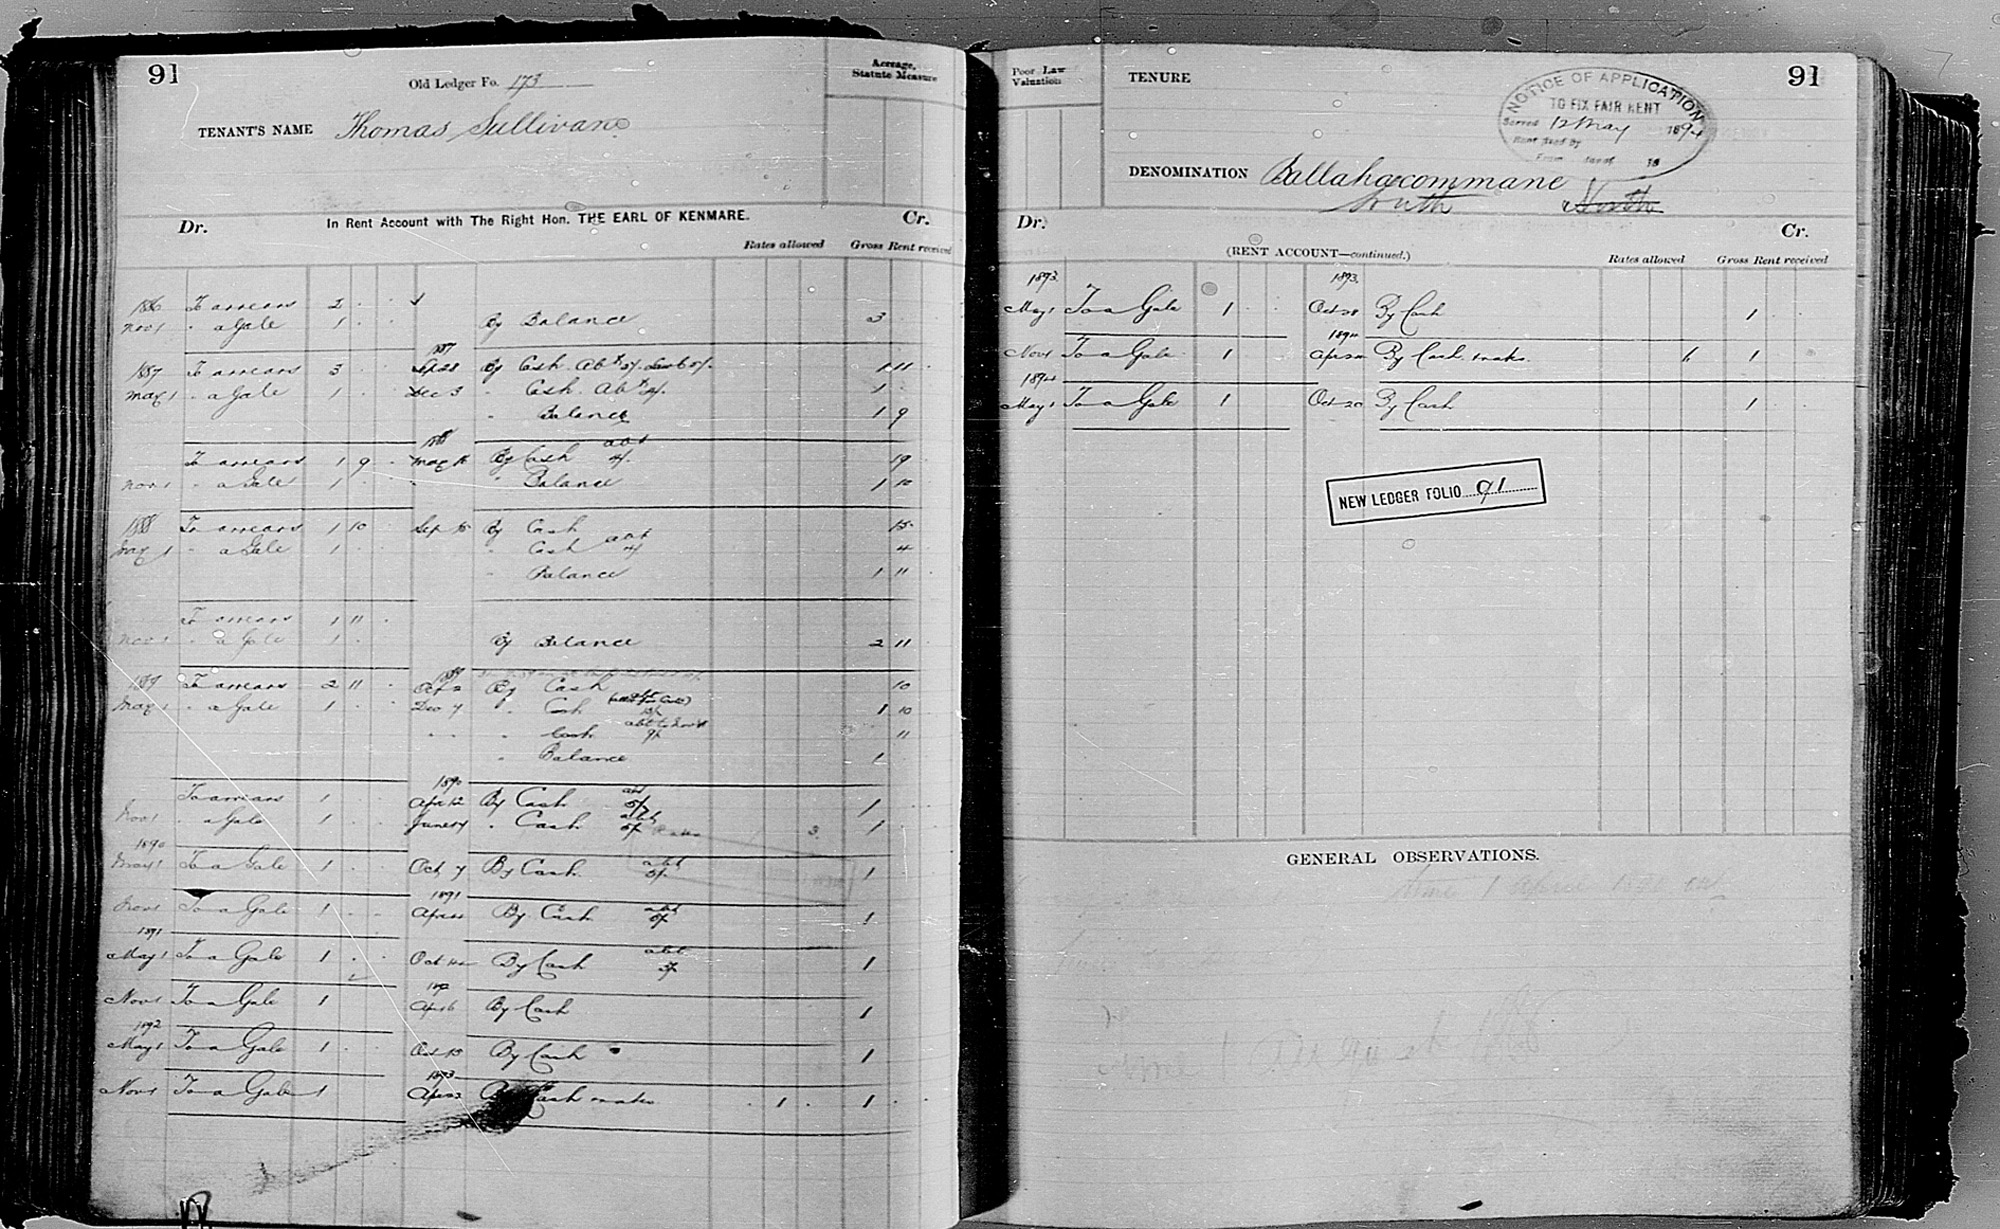 91
Old Ledger Fo. 173
Acreage, Statute Measure
TENANT'S NAME Thomas Sullivan
Dr. In Rent Account with The Right Hon. THE EARL OF KENMARE. Cr.
Rates allowed Gross Rent received
1886 To arrears 2
Nov 1 " a Gale 1 By Balance 3
1887
1887 To arrears 3 Sep 28 By Cash 1 11
May 1 " a Gale 1 Dec 3 " Cash 1
" Balance 1 9
1888
To arrears 1 9 By Cash 19
Nov 1 " a Gale 1 " Balance 1 10
1888 To arrears 1 10 Sep By Cash 15
May 1 " a Gale 1 " Cash 4
" Balance 1 11
To arrears 1 11
Nov 1 " a Gale 1 By Balance 2 11
1889
1889 To arrears 2 11 Oct 2 By Cash 10
May 1 " a Gale 1 Dec 7 " Cash 1 10
" Cash 11
" Balance 1
1890
To arrears 1 Apr 12 By Cash abt 5/ 1
Nov 1 " a Gale 1 June " Cash abt 5/ Rates 3 1
1890
May 1 To a Gale 1 Oct 7 By Cash abt 5/ 1
1891
Nov 1 To a Gale 1 Apr By Cash abt 5/ 1
1891
May 1 To a Gale 1 Oct By Cash abt 1
1892
Nov 1 To a Gale 1 Apr 6 By Cash 1
1892
May 1 To a Gale 1 Oct 13 By Cash 1
1893
Nov 1 To a Gale 1 Apr By Cash rates 1 1
Poor Law Valuation
TENURE
91
NOTICE OF APPLICATION
TO FIX FAIR RENT
Served 12 May 1894
Rent fixed by
From day of 18
DENOMINATION Ballahacommane
South North
Dr. Cr.
(RENT ACCOUNT—continued.)
Rates allowed Gross Rent received
1893 1893
May 1 To a Gale 1 Oct 28 By Cash 1
1894
Nov 1 To a Gale 1 Apr By Cash rates 1
1894
May 1 To a Gale 1 Oct 20 By Cash 1
NEW LEDGER FOLIO 91
GENERAL OBSERVATIONS.
1 April